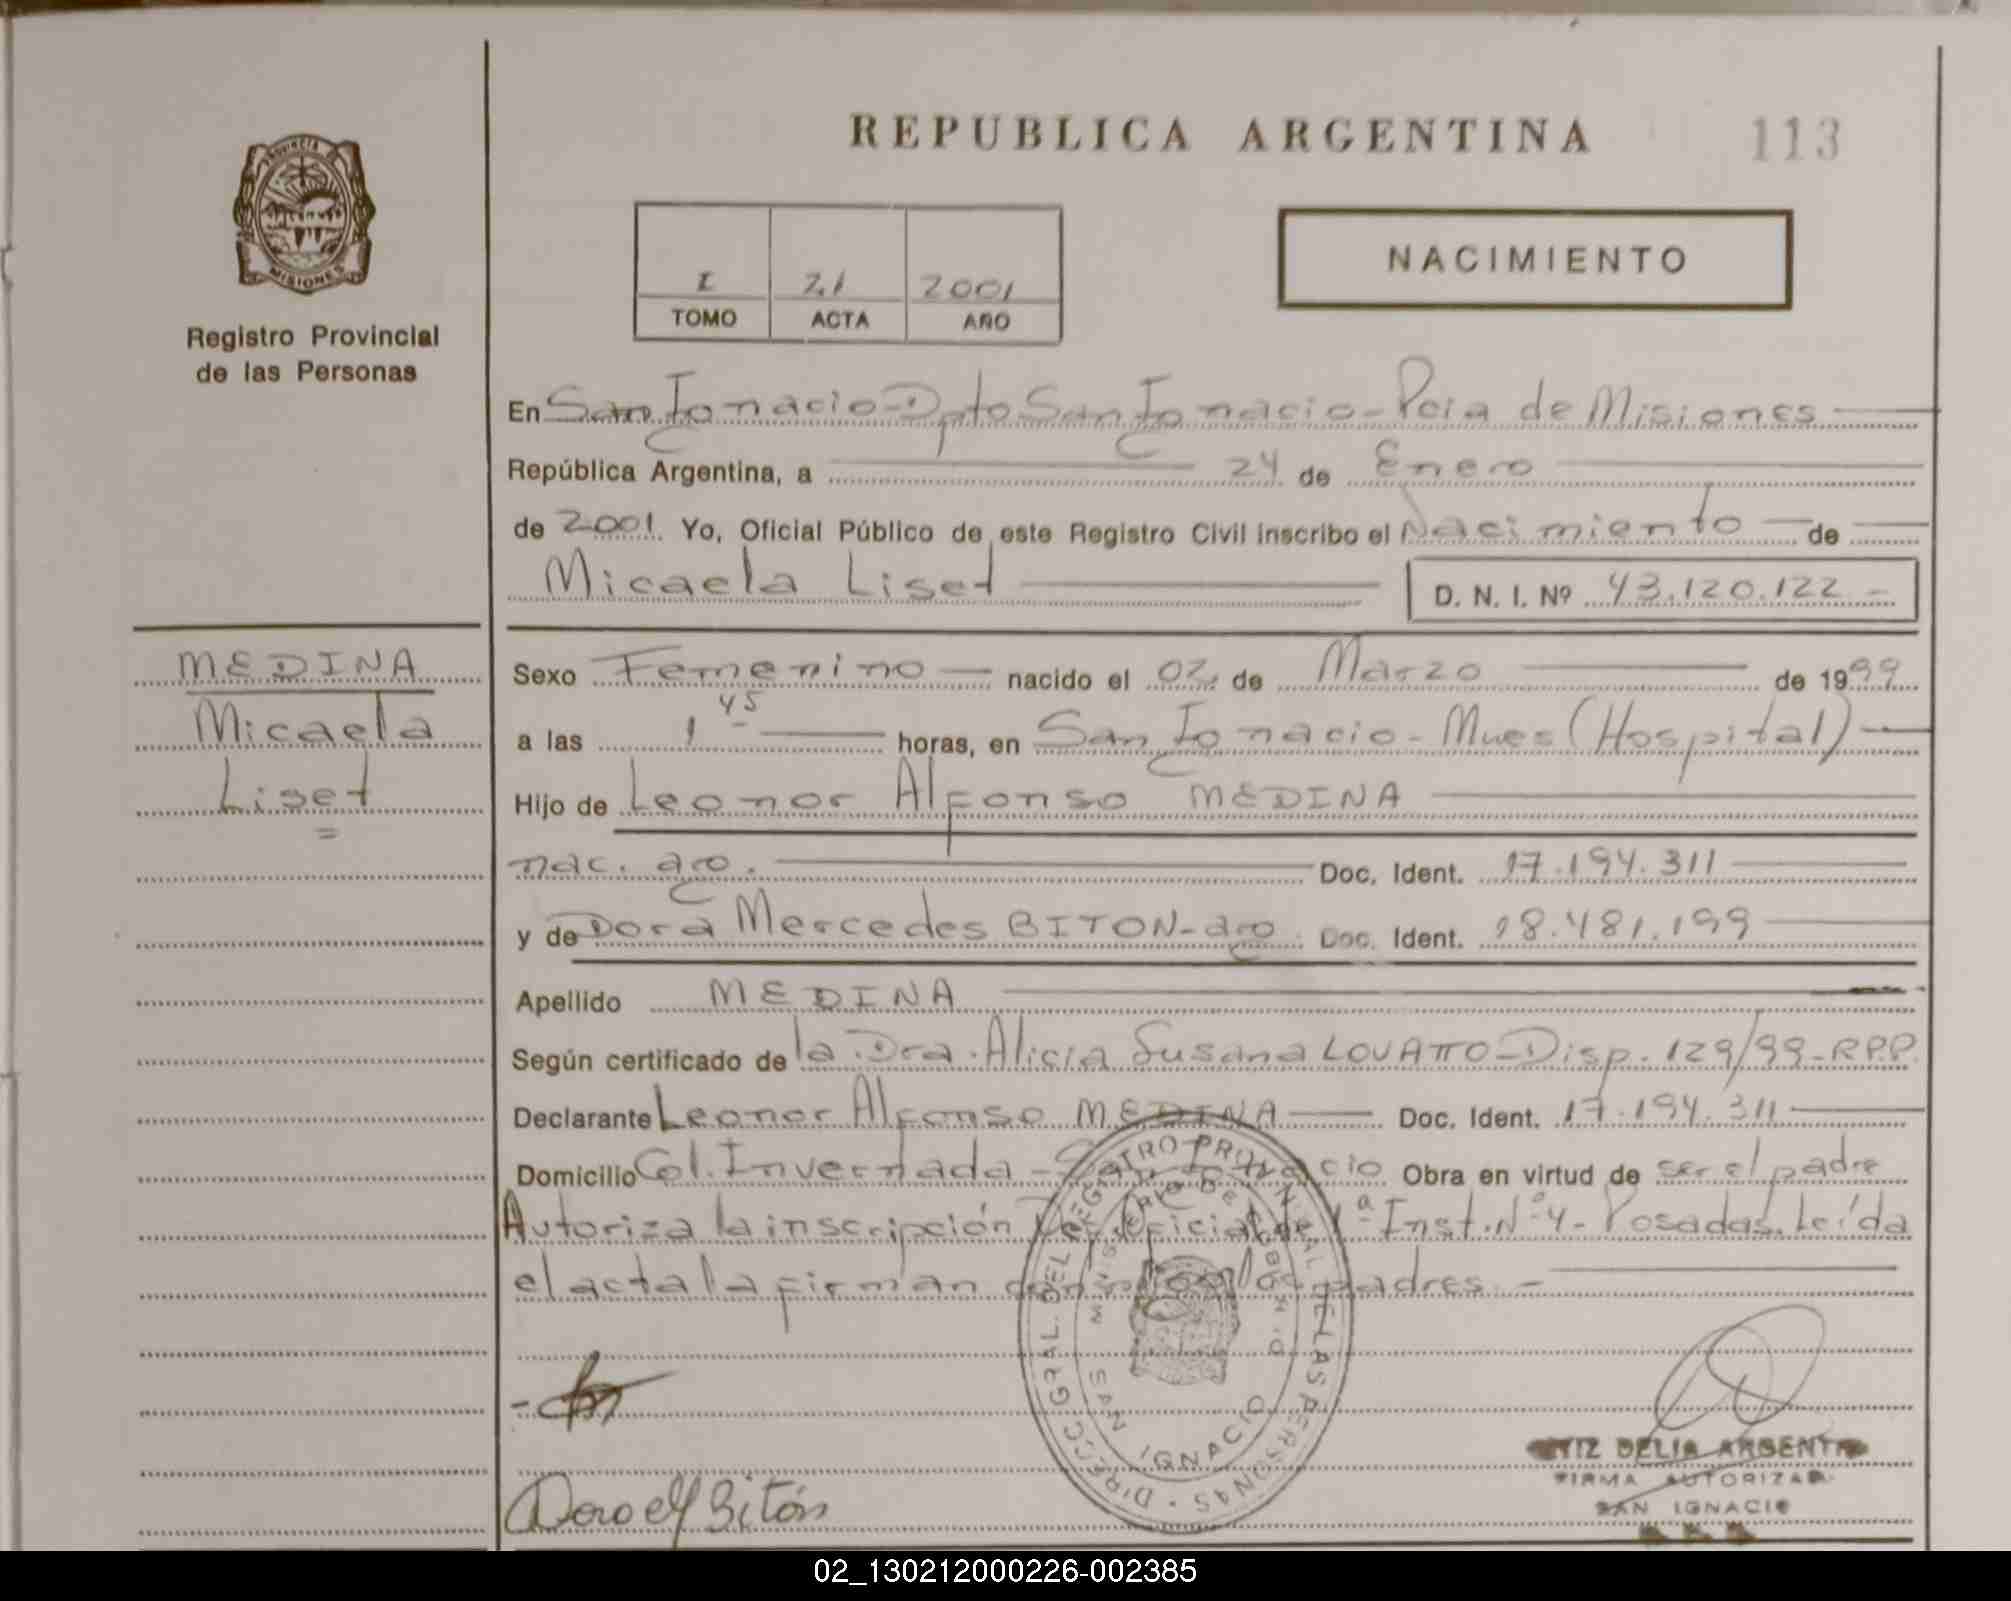 REPUBLICA ARGENTINA
113
PROVINCIA
MISIONES
Registro Provincial
de las Personas
I 21 2001
TOMO ACTA AÑO
NACIMIENTO
En San Ignacio - Dpto San Ignacio - Pcia de Misiones
República Argentina, a 24 de Enero
de 2001. Yo, Oficial Público de este Registro Civil inscribo el Nacimiento de
Micaela Liset D. N. I. Nº 43.120.122 -
MEDINA
Micaela
Liset
Sexo Femenino nacido el 02 de Marzo de 1999
a las 1 45 horas, en San Ignacio - Mnes (Hospital)
Hijo de Leonor Alfonso MEDINA
nac. arg. Doc. Ident. 17.194.311
y de Dora Mercedes BITON - arg Doc. Ident. 18.481.199
Apellido MEDINA
Según certificado de la Dra. Alicia Susana LOVATTO - Disp. 129/99 - R.P.P.
Declarante Leonor Alfonso MEDINA Doc. Ident. 17.194.311
Domicilio Col. Invernada - San Ignacio Obra en virtud de ser el padre
Autoriza la inscripción de 1ª Inst. Nº 4 - Posadas. Leída
el acta la firman los padres. -
DIRECC. GRAL. DEL REGISTRO PROVINCIAL DE LAS PERSONAS
MINISTERIO DE GOBIERNO
SAN IGNACIO
Dora M Bitón
DELIA ARGENTI
FIRMA AUTORIZADA
SAN IGNACIO
02_130212000226-002385